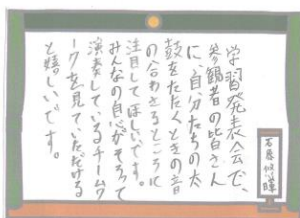 学習発表会で、
参観者の皆さん
に、自分たちの太
鼓をたたくときの音
の合わさるところに
注目してほしいです。
みんなの自心がそろって
演奏しているチームワ
ークを見ていただける
と嬉しいです。